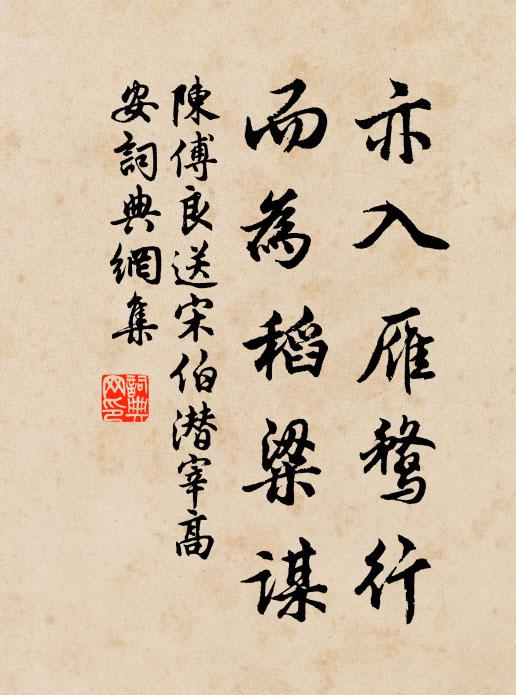 亦入雁鶩行
而為稻粱謀
陳傅良送宋伯潛宰高
安詞典網集
詞典
网印